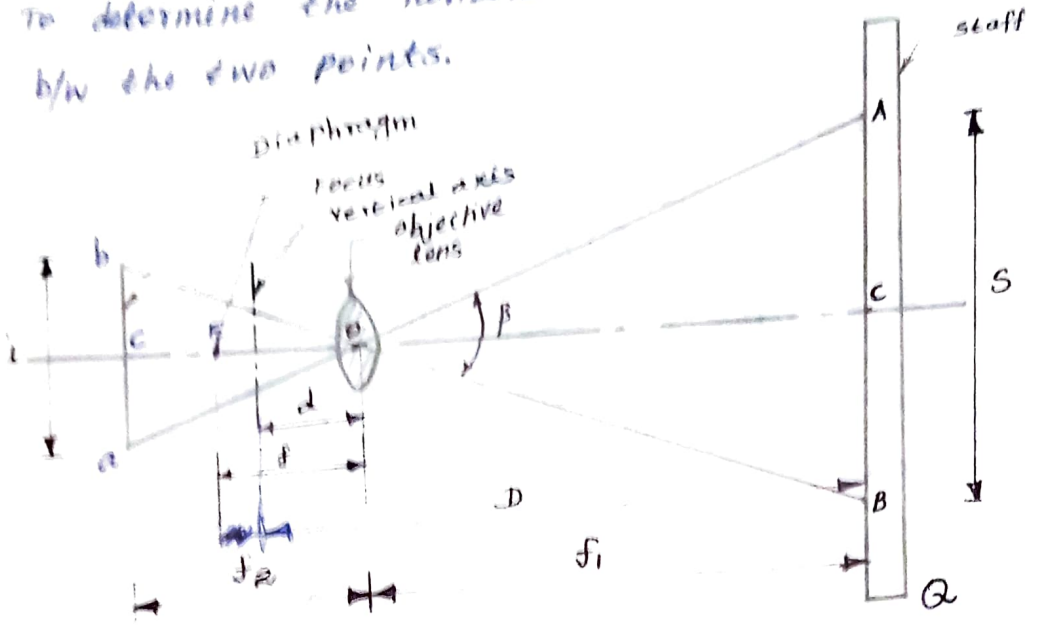 To determine the
b/w the two points.
staff
Diaphragm
Focus
vertical axis
objective
lens
A
b
S
C
c
F
O
β
i
d
a
f
B
D
f1
f2
Q